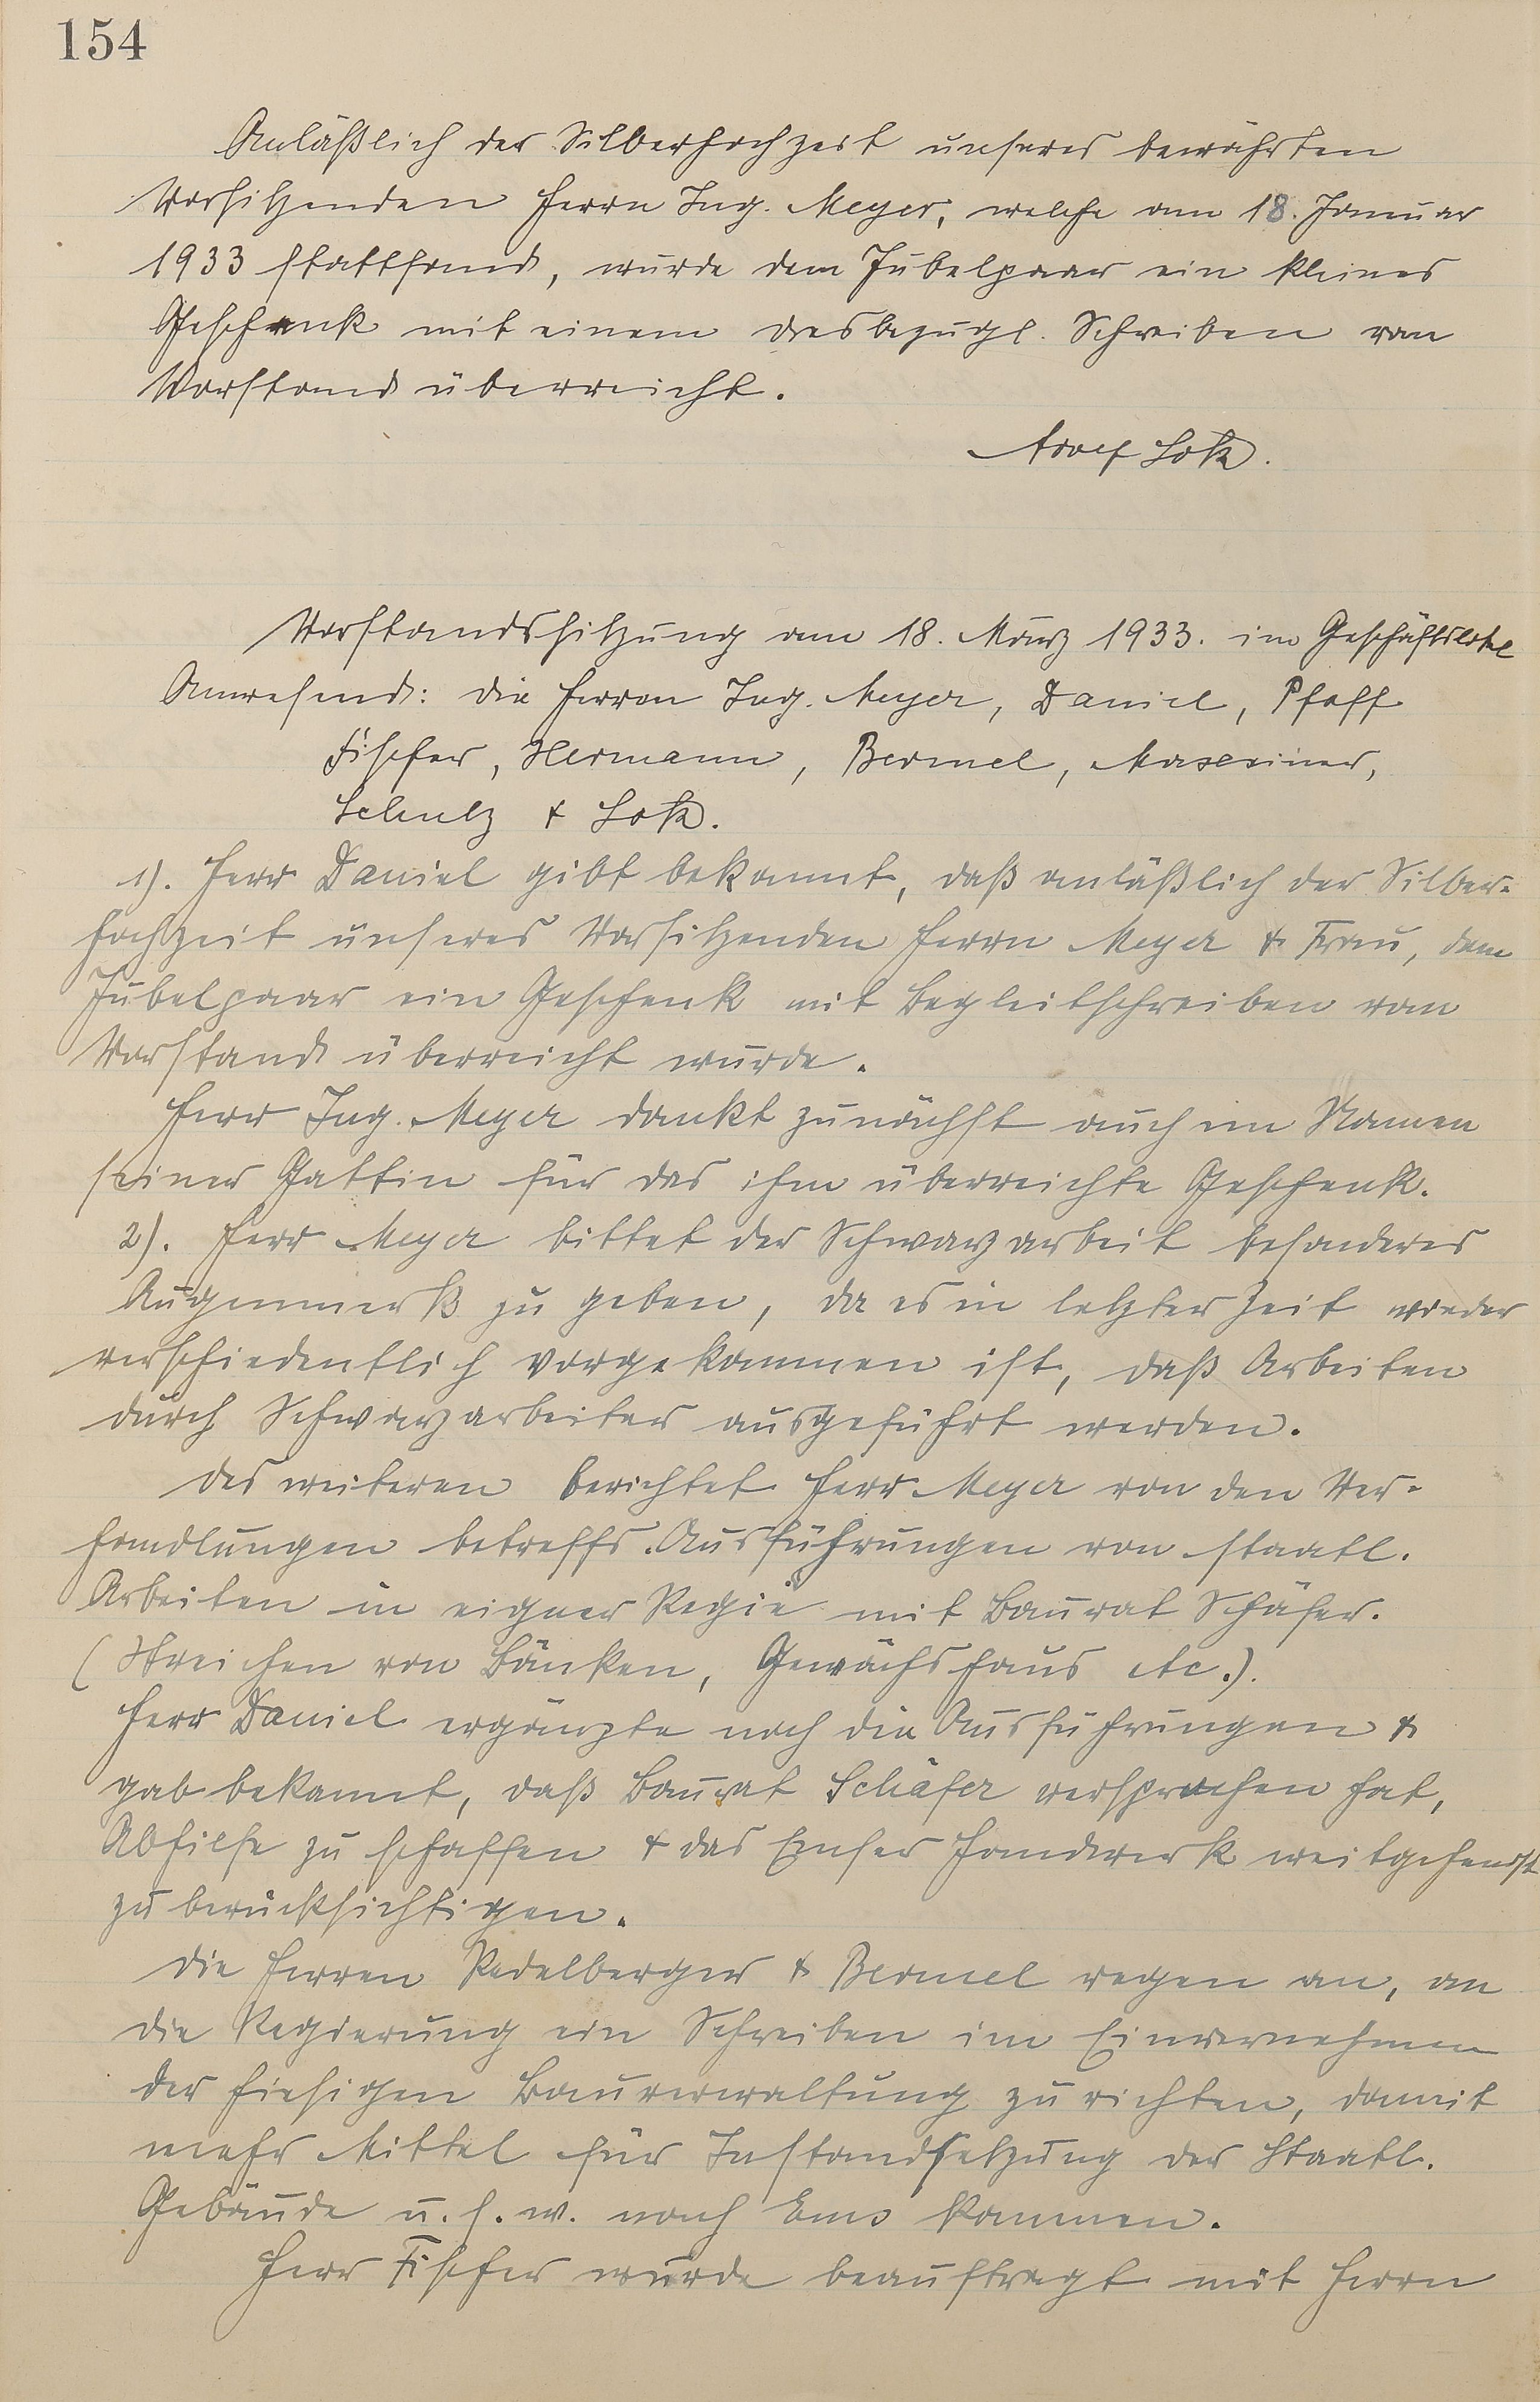 154
Anläßlich der Silberhochzeit unseres bewährten
Vorsitzenden Herrn Ing. Meyer, welche am 18. Januar
1933 stattfand, wurde dem Jubelpaar ein kleines
Geschenk mit einem diesbezügl. Schreiben vom
Vorstand überreicht.
Adolf Lotz.
Vorstandssitzung am 18. März 1933. im Geschäftslokal
Anwesend: die Herren Ing. Meyer, Daniel, Pfaff
Fischer, Hermann, Bermel, Maxeiner,
Schulz & Lotz.
1). Herr Daniel gibt bekannt, daß anläßlich der Silber-
hochzeit unseres Vorsitzenden Herrn Meyer & Frau, dem
Jubelpaar ein Geschenk mit Begleitschreiben vom
Vorstand überreicht wurde.
Herr Ing. Meyer dankt zunächst auch im Namen
seiner Gattin für das ihm überreichte Geschenk.
2). Herr Meyer bittet der Schwarzarbeit besonderes
Augenmerk zu geben, da es in letzter Zeit wieder
verschiedentlich vorgekommen ist, daß Arbeiten
durch Schwarzarbeiter ausgeführt werden.
Des weiteren berichtet Herr Meyer von den Ver-
handlungen betreffs. Ausführungen von staatl.
Arbeiten in eigner Regie mit Baurat Schäfer.
(Streichen von Bänken, Gewächshaus etc.).
Herr Daniel ergänzte noch die Ausführungen &
gab bekannt, daß Baurat Schäfer versprochen hat,
Abhilfe zu schaffen & das Emser Handwerk weitgehendst
zu berücksichtigen.
Die Herren Redelberger & Bermel regen an, an
die Regierung ein Schreiben im Einvernehmen
der hiesigen Bauverwaltung zu richten, damit
mehr Mittel für Instandsetzung der Staatl.
Gebäude u.s.w. nach Ems kommen.
Herr Fischer wurde beauftragt mit Herrn